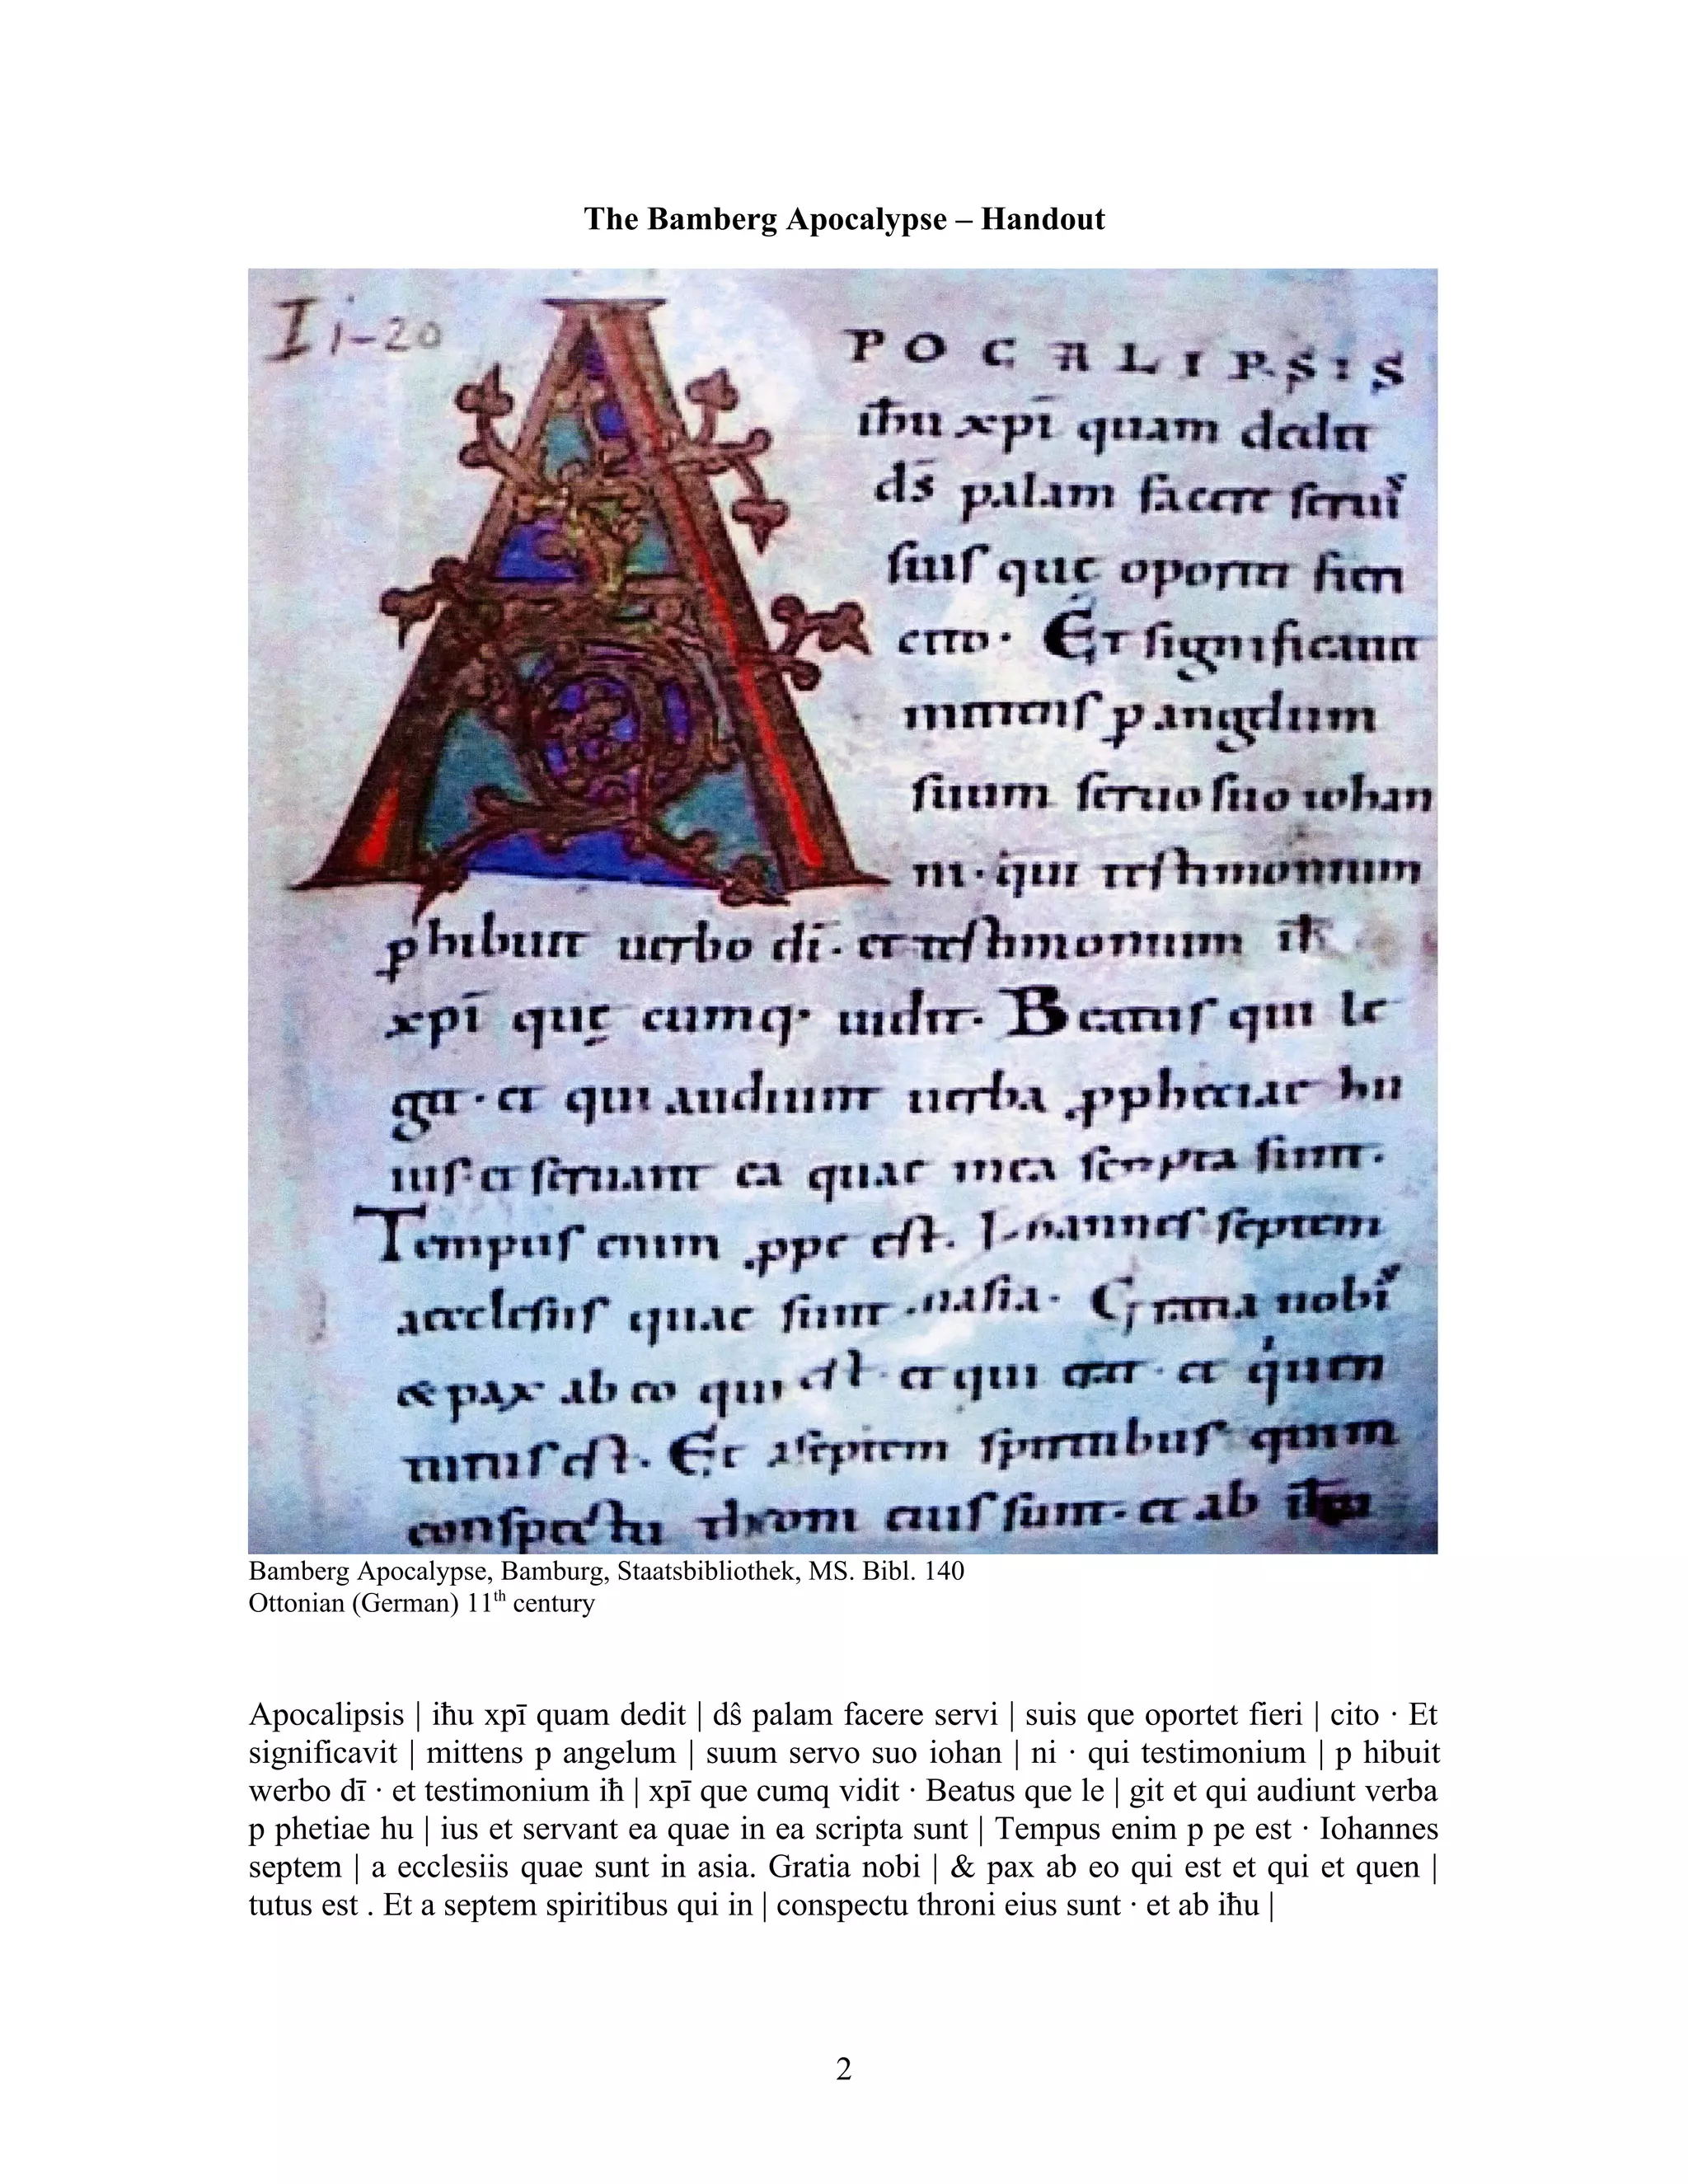 The Bamberg Apocalypse – Handout
I i-20
APOCALIPSIS
iħu xpī quam dedit
ds̄ palam facere seruis
suis quę oportet fieri
cito · Et significauit
mittens p angelum
suum seruo suo iohan
ni · qui testimonium
phibuit uerbo dī · et testimonium iħ
xpī quę cumq· uidit· Beatus qui le
git · et qui audiunt uerba pphetiae hu
ius· et seruant ea quae in ea scripta sunt·
Tempus enim ppe est. Iohannes septem
aecclesiis quae sunt in asia· Gratia nobis
& pax ab eo qui est · et qui erat · et qui uen
turus est. Et a septem spiritibus qui in
conspectu throni eius sunt· et ab iħu
Bamberg Apocalypse, Bamburg, Staatsbibliothek, MS. Bibl. 140
Ottonian (German) 11th century
Apocalipsis | iħu xpī quam dedit | dŝ palam facere servi | suis que oportet fieri | cito · Et
significavit | mittens p angelum | suum servo suo iohan | ni · qui testimonium | p hibuit
werbo dī · et testimonium iħ | xpī que cumq vidit · Beatus que le | git et qui audiunt verba
p phetiae hu | ius et servant ea quae in ea scripta sunt | Tempus enim p pe est · Iohannes
septem | a ecclesiis quae sunt in asia. Gratia nobi | & pax ab eo qui est et qui et quen |
tutus est . Et a septem spiritibus qui in | conspectu throni eius sunt · et ab iħu |
2